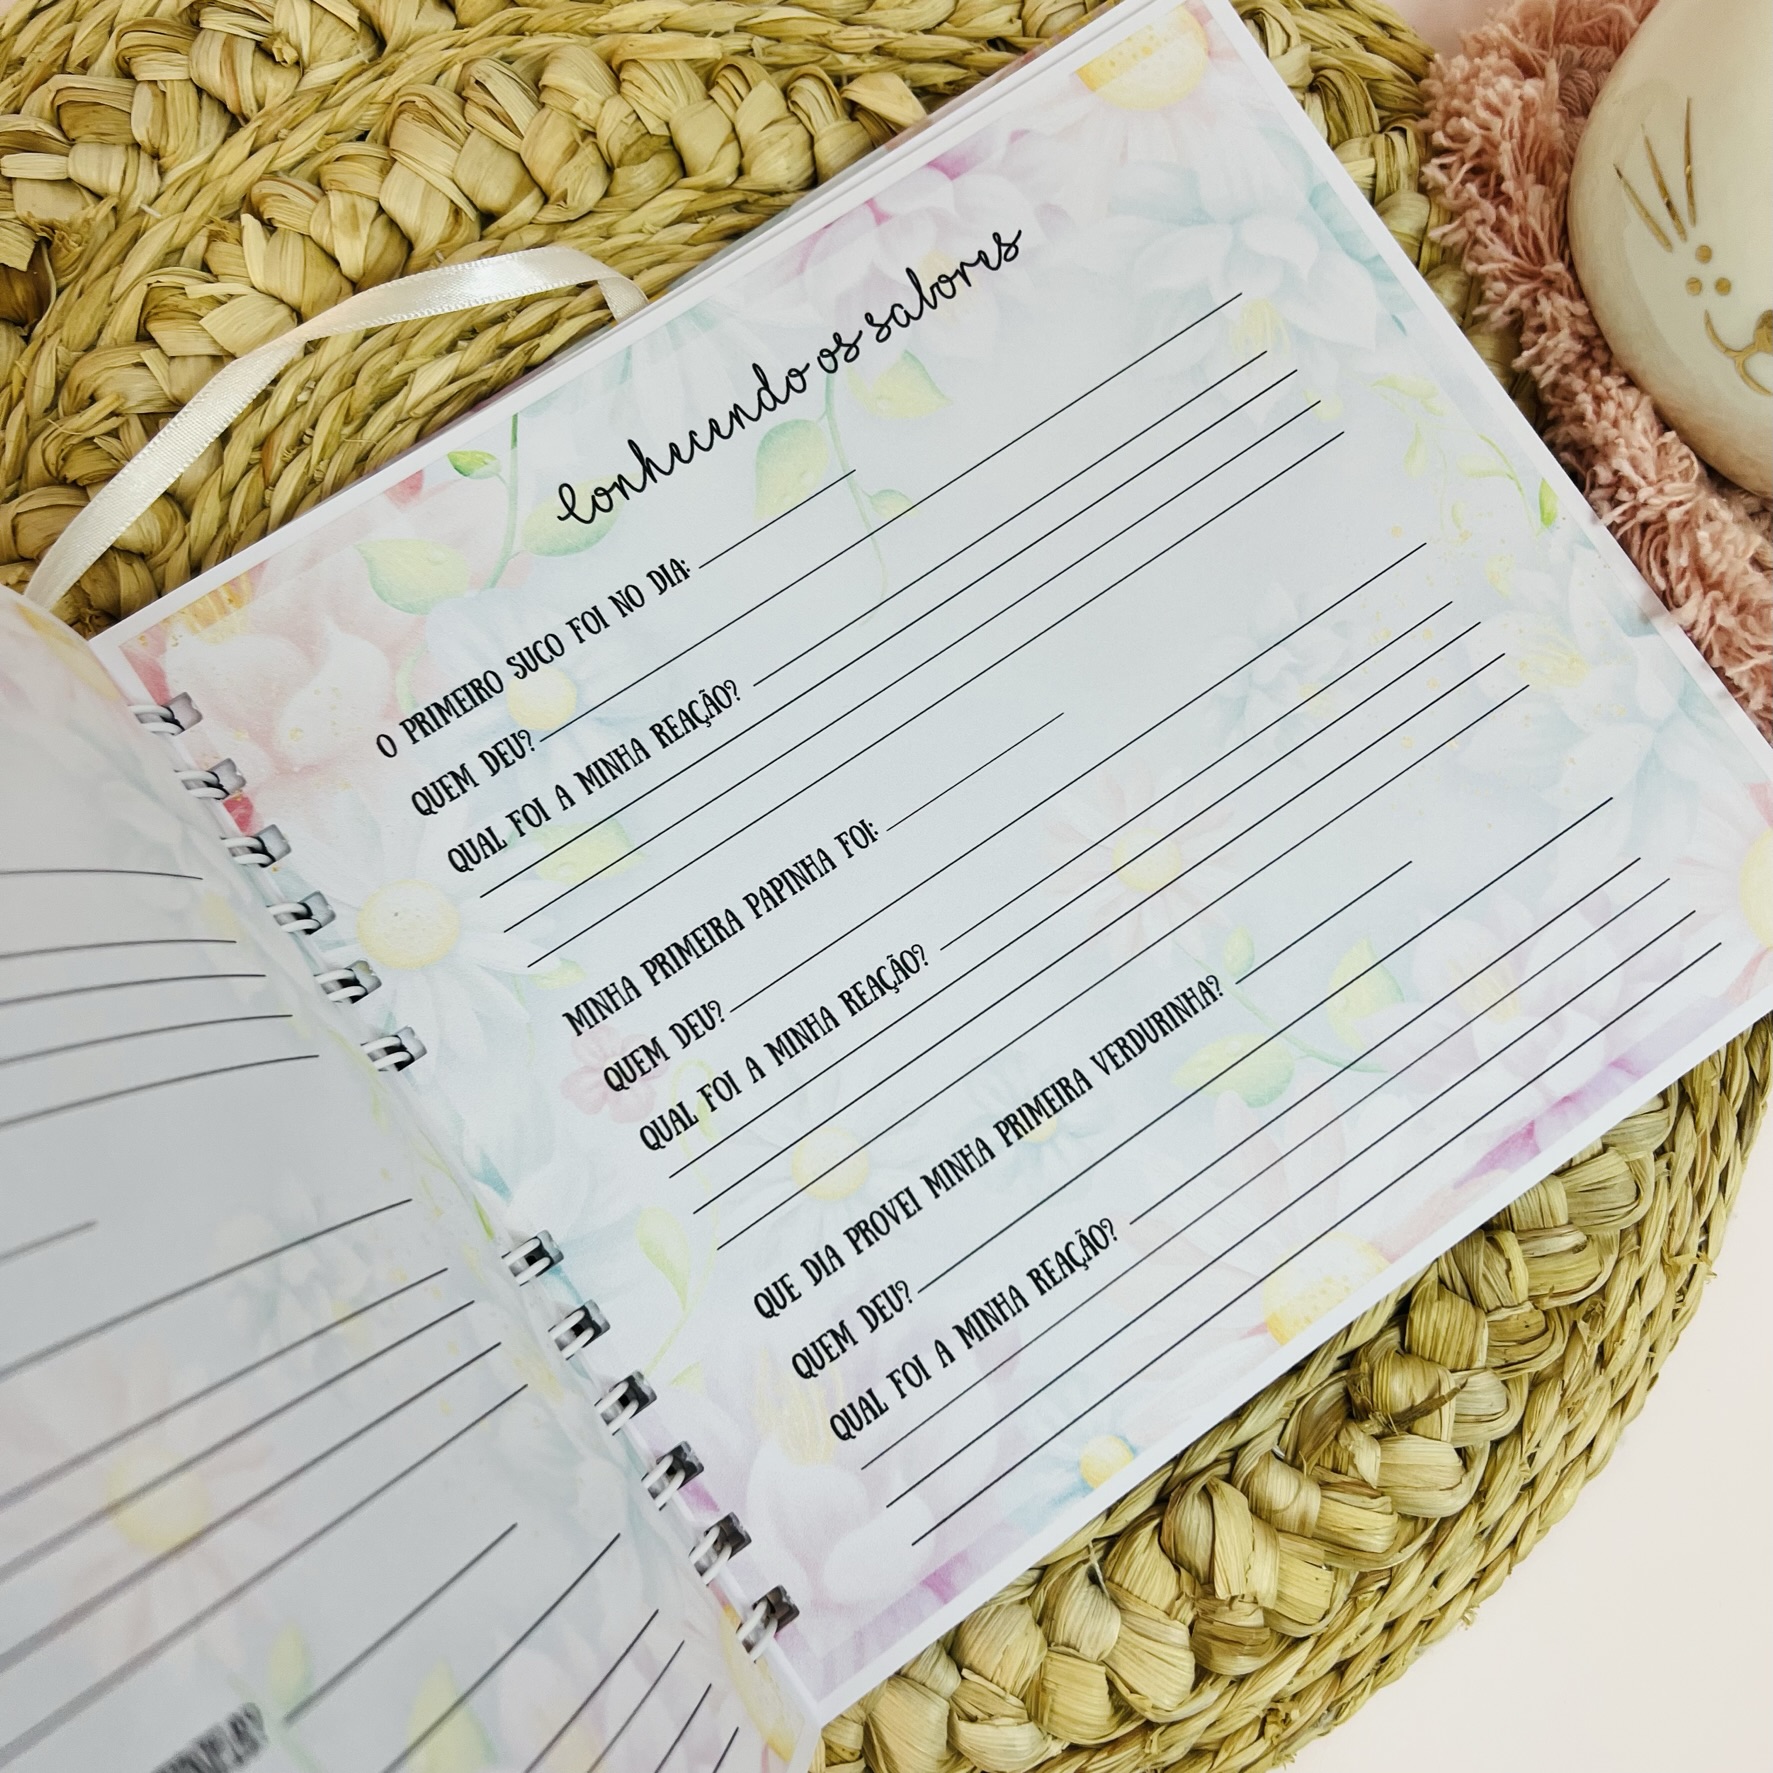 Conhecendo os sabores
O PRIMEIRO SUCO FOI NO DIA:
QUEM DEU?
QUAL FOI A MINHA REAÇÃO?
MINHA PRIMEIRA PAPINHA FOI:
QUEM DEU?
QUAL FOI A MINHA REAÇÃO?
QUE DIA PROVEI MINHA PRIMEIRA VERDURINHA?
QUEM DEU?
QUAL FOI A MINHA REAÇÃO?